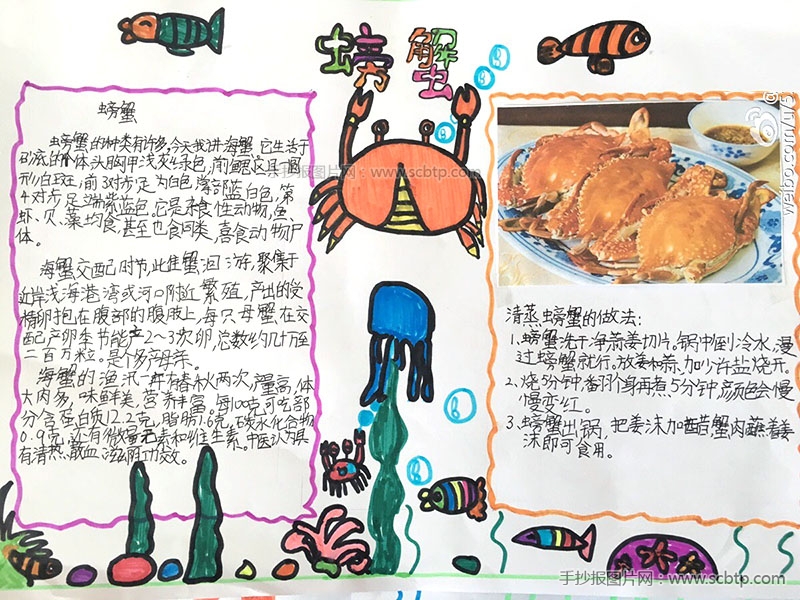 螃蟹
螃蟹
螃蟹的种类有许多,今天我讲海蟹。它生活于
体头胸甲浅灰绿色,前
形白斑,前3对步足为白色
4对步足末端紫蓝色。它是杂食性动物,鱼、
虾、贝、藻均食,甚至也食同类,喜食动物尸
体。
海蟹交配时节,此雌蟹洄游,聚集于
近岸浅海港湾或河口附近繁殖,产出的受
精卵抱在腹部的腹肢上,每只母蟹在交
配产卵季节能产2~3次卵,总数约几十万至
二百万粒。是个多产母亲。
海蟹的渔汛一年有春秋两次,产量高,体
大肉多,味鲜美,营养丰富。每100克可吃部
分含蛋白质12.2克,脂肪1.6克,碳水化合物
0.9克,还有微量元素和维生素。中医认为具
有清热、散血、滋阴功效。
手抄报图片网:www.scbtp.com
weibo.com/u/5
清蒸螃蟹的做法:
1、螃蟹洗干净,蒜姜切片。锅中倒冷水,漫
过螃蟹就行。放姜和蒜,加少许盐烧开。
2、烧5分钟,翻个身再煮5分钟,颜色会慢
慢变红。
3、螃蟹出锅,把姜沫加醋,蟹肉蘸着姜
沫即可食用。
手抄报图片网:www.scbtp.com